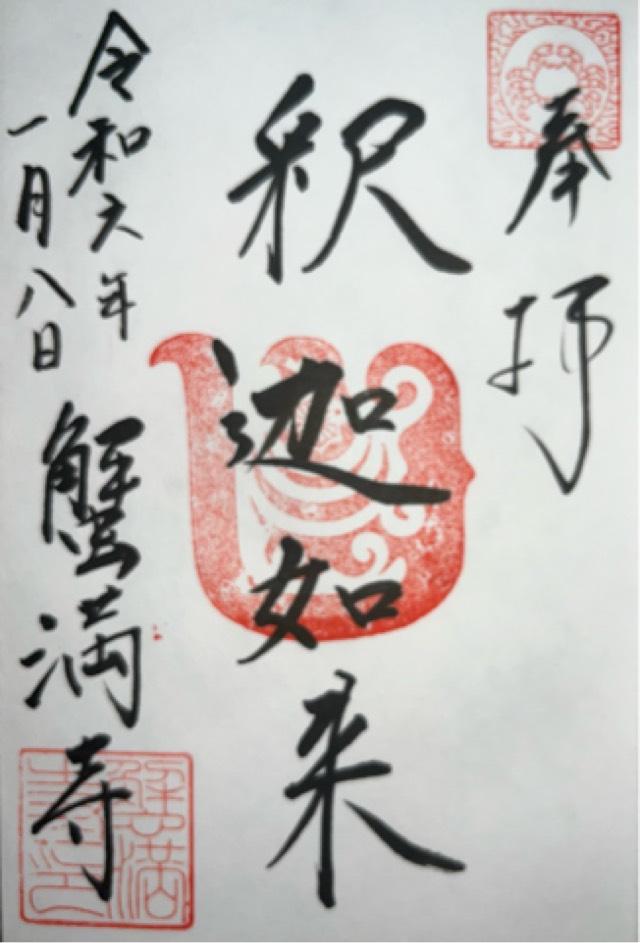 奉拝
釈迦如来
令和六年
一月八日
蟹満寺
蟹満寺印